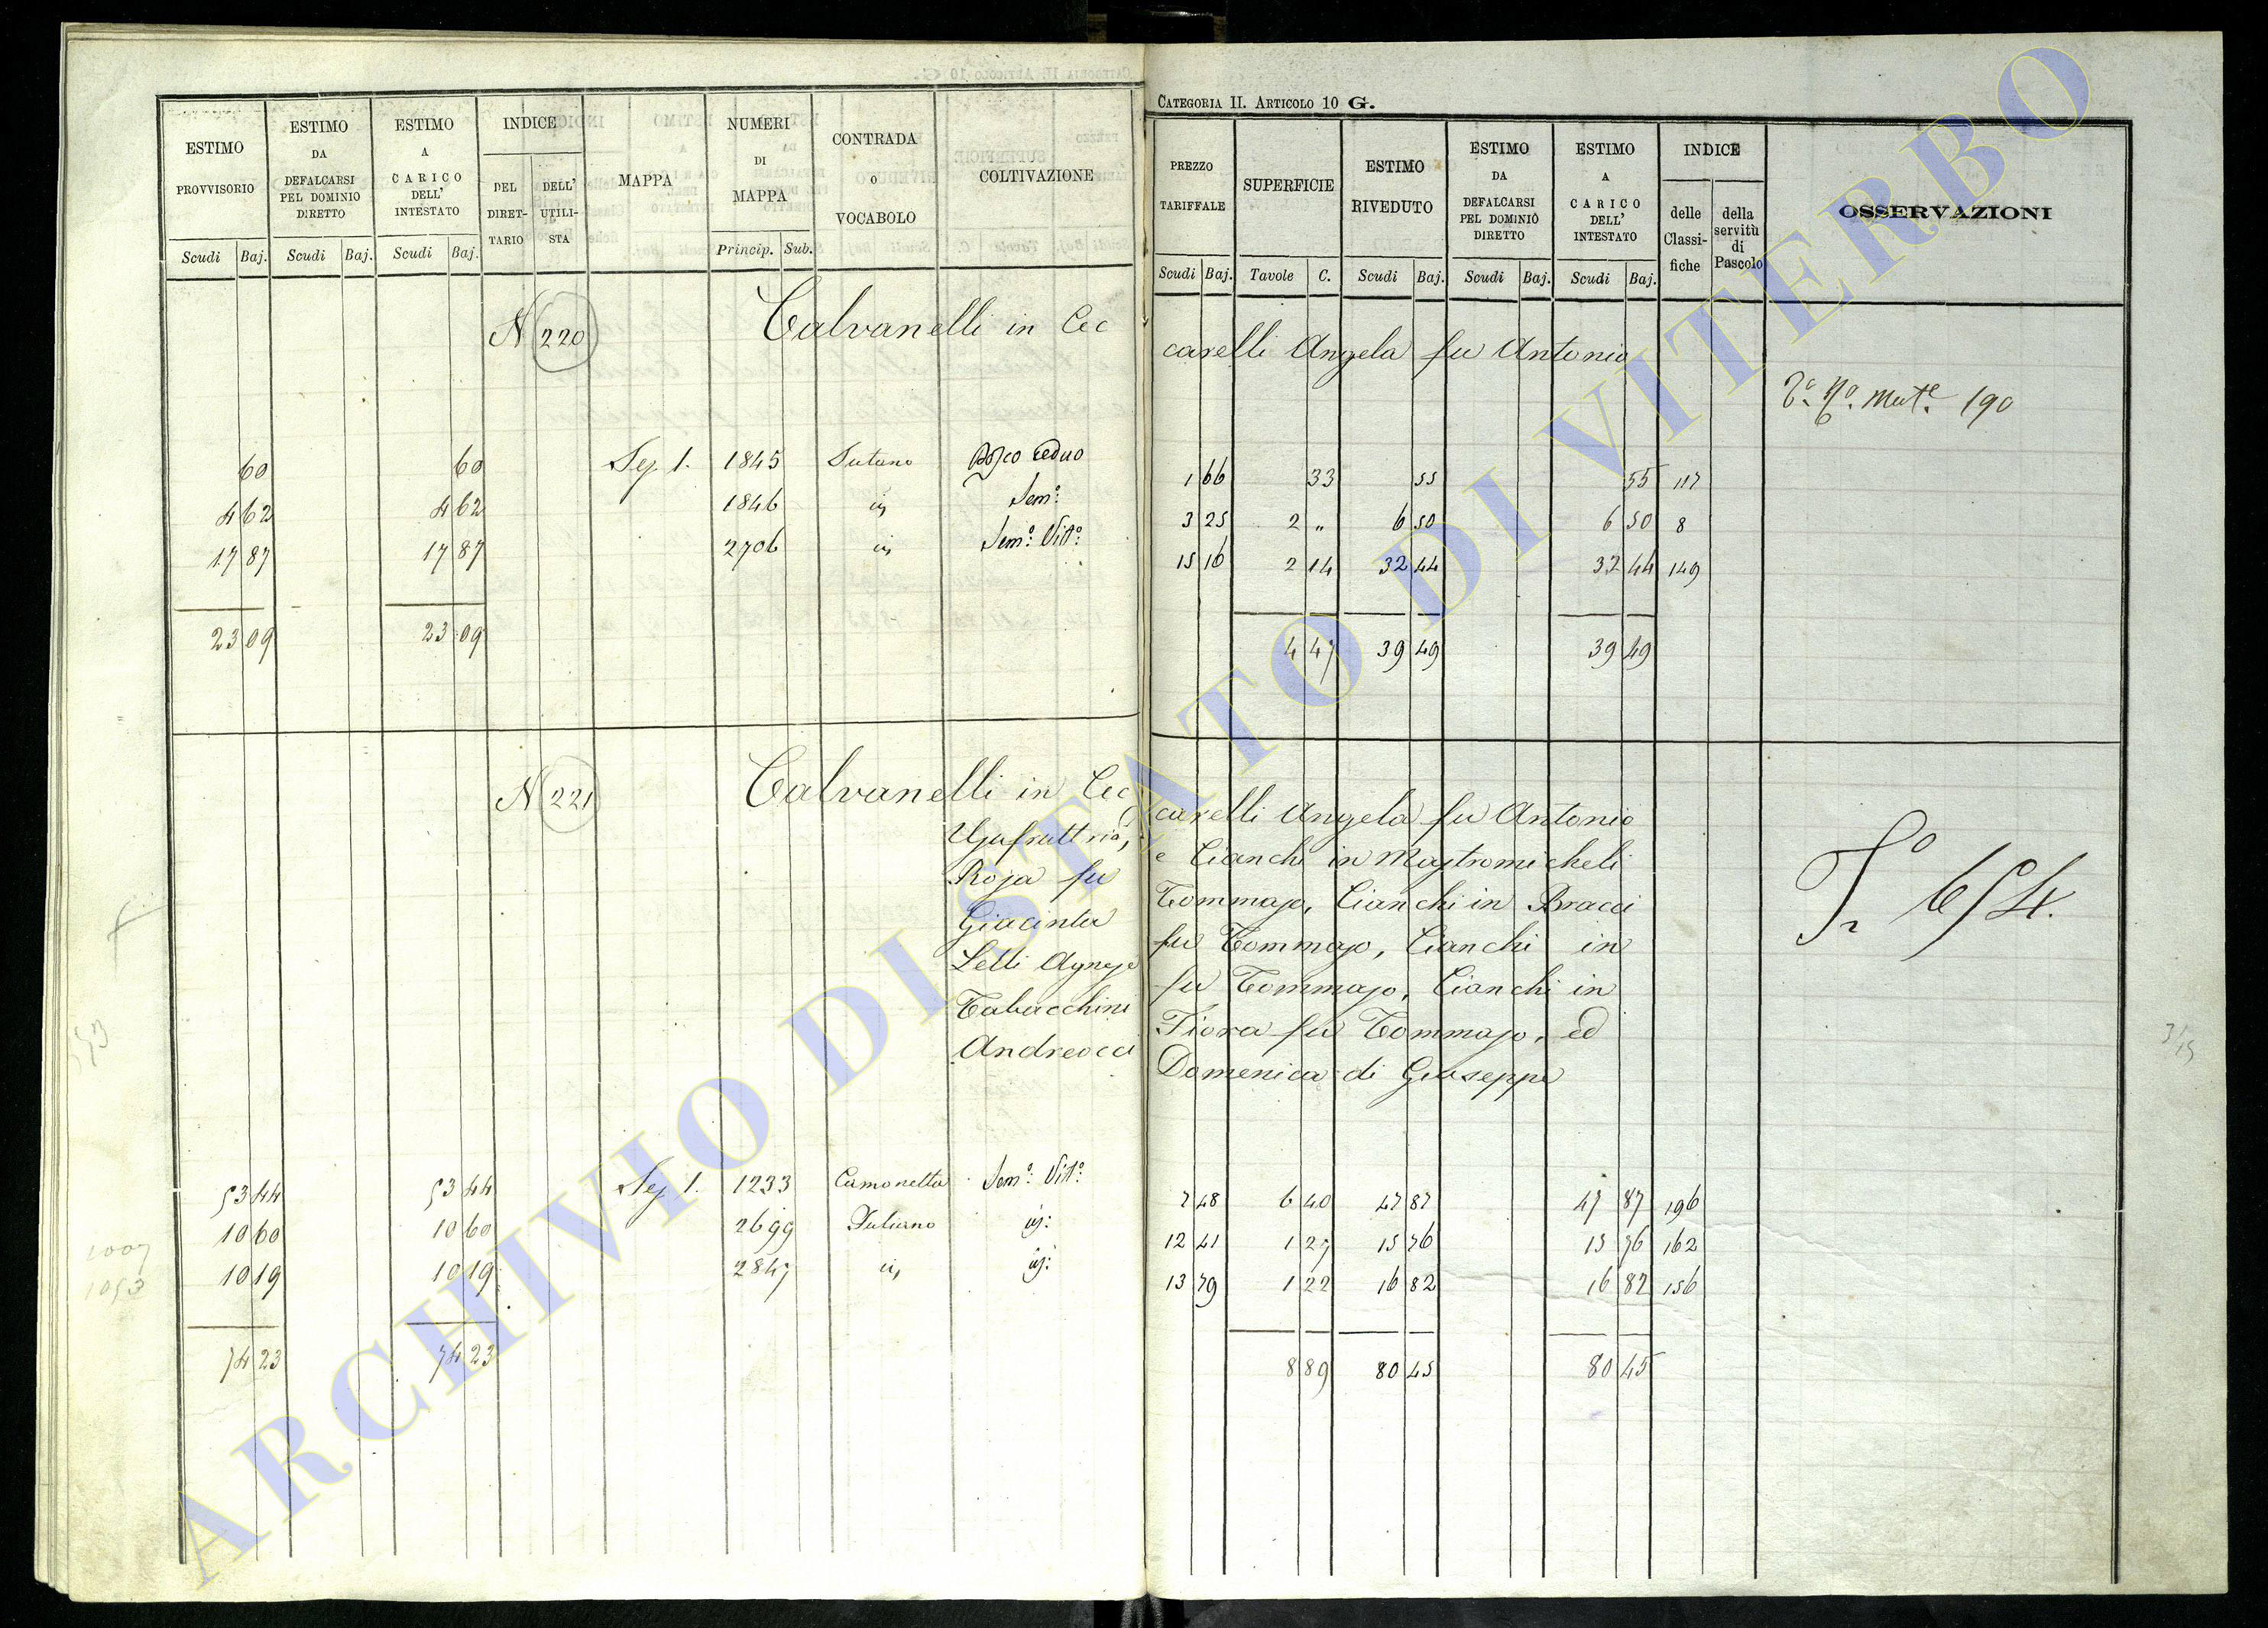 CATEGORIA II. ARTICOLO 10 G.
ESTIMO PROVVISORIO Scudi Baj.
ESTIMO DA DEFALCARSI PEL DOMINIO DIRETTO Scudi Baj.
ESTIMO A CARICO DELL' INTESTATO Scudi Baj.
INDICE DEL DIRETTARIO DELL' UTILISTA
MAPPA
NUMERI DI MAPPA Princip. Sub.
CONTRADA o VOCABOLO
COLTIVAZIONE
PREZZO TARIFFALE Scudi Baj.
SUPERFICIE Tavole C.
ESTIMO RIVEDUTO Scudi Baj.
ESTIMO DA DEFALCARSI PEL DOMINIO DIRETTO Scudi Baj.
ESTIMO A CARICO DELL' INTESTATO Scudi Baj.
INDICE delle Classifiche della servitù di Pascolo
OSSERVAZIONI
N 220 Calvanelli in Cec carelli Angela fu Antonio
Mut.e 190
60 60 Sez. 1. 1845 Bosco ceduo 1 66 33 55 55 117
4 62 4 62 1846 Sem.o 3 25 2 „ 6 50 6 50 8
17 87 17 87 2706 Sem.o Vit.o 15 16 2 14 32 44 32 44 149
23 09 23 09 4 47 39 49 39 49
N 221 Calvanelli in Cec carelli Angela fu Antonio
e Cianchi in Mastromicheli
Rosa fu Tommaso, Cianchi in Bracci
Giacinta fu Tommaso, Cianchi in
Letti Agnese fu Tommaso, Cianchi in
Tabacchini Fiora fu Tommaso, ed
Andreocci Domenica di Giuseppe
654.
53 44 53 44 Sez. 1. 1233 Camonetta Sem.o Vit.o 7 48 6 40 47 87 47 87 196
10 60 10 60 2699 Juliano 12 41 1 27 15 76 15 76 162
10 19 10 19 2847 13 79 1 22 16 82 16 82 156
74 23 74 23 8 89 80 45 80 45
1007
1053
ARCHIVIO DI STATO DI VITERBO